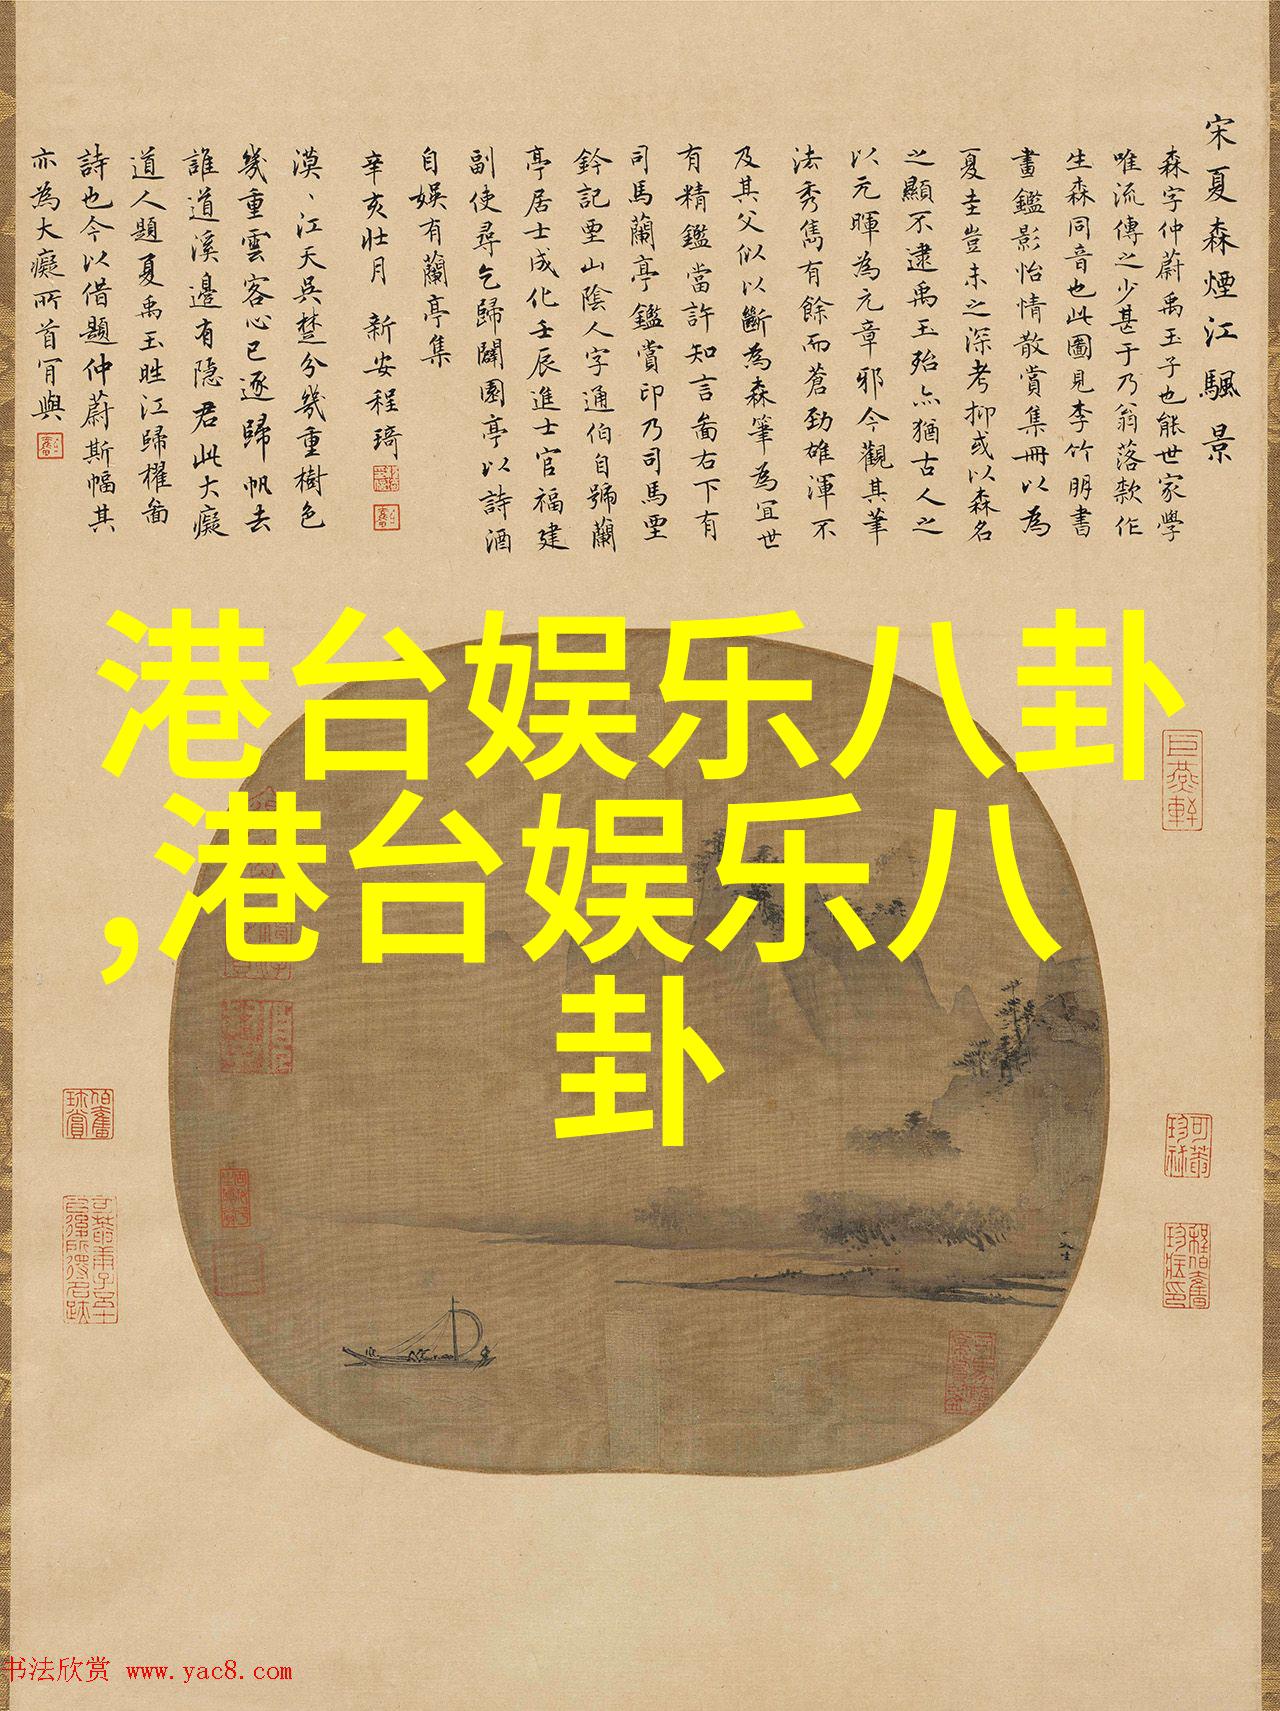 宋夏森煙江驅景
森字仲蔚禹玉子也能世家學
唯流傳之少甚于乃翁落款作
生森同音也此圖見李竹朋書
畫鑑影怡情散賞集冊以為
夏圭豈未之深考抑或以森名
之顯不逮禹玉殆亦猶古人之
以元暉為元章邪今觀其筆
法秀雋有餘而蒼勁雄渾不
及其父似以斷為森筆為宜世
有精鑑當許知言畫右下有
司馬蘭亭鑑賞印乃司馬垔
鈐記垔山陰人字通伯自號蘭
亭居士成化壬辰進士官福建
副使尋乞歸闢園亭以詩酒
自娛有蘭亭集
辛亥壯月 新安程琦
漠、江天吳楚分幾重樹色
幾重雲客心已逐歸帆去
誰道溪邊有隱君此大癡
道人題夏禹玉晴江歸櫂圖
詩也今以借題仲蔚斯幅其
亦為大癡所首肯與
港台娱乐八卦
,港台娱乐八
卦
书法欣赏 www.yac8.com